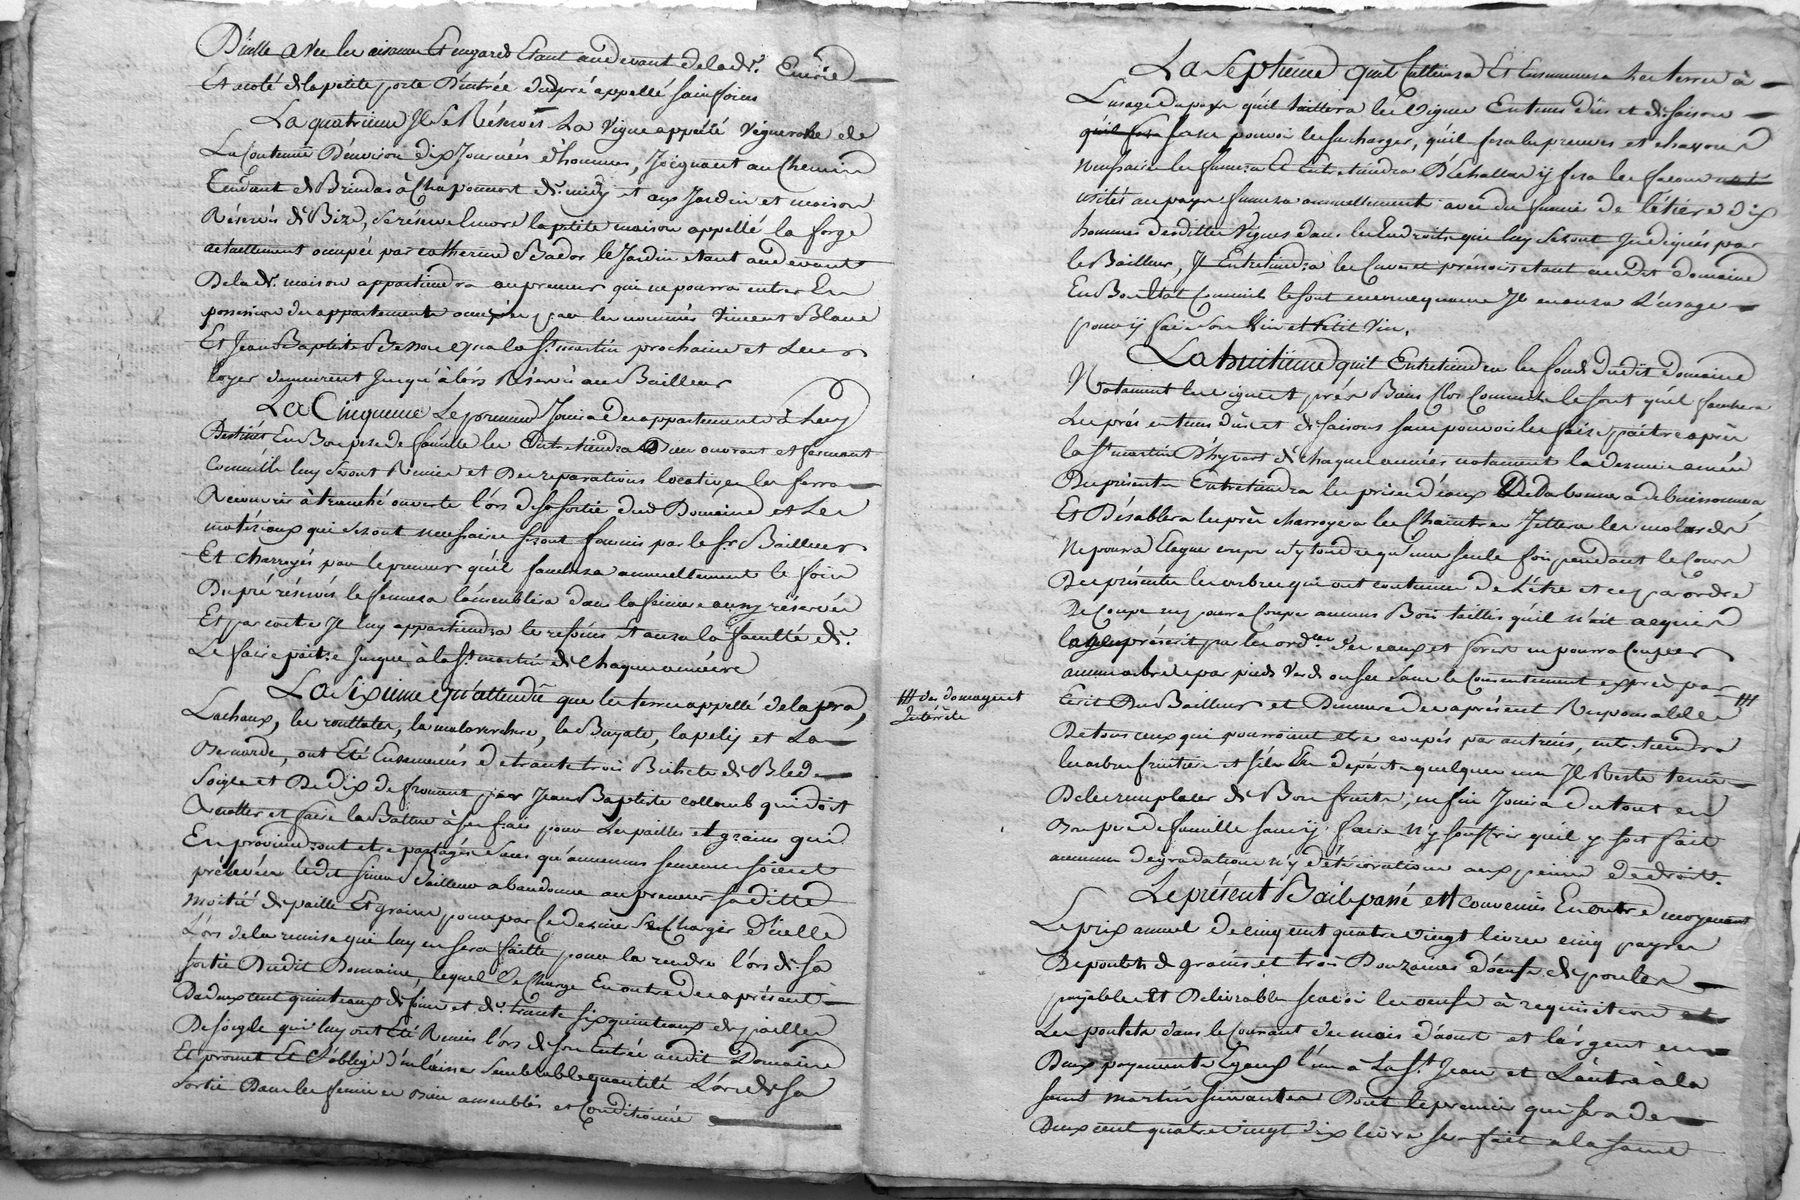 D'icelle avec les aisances et engards etant audevant de lad.e Ecurie
Et acoté de la petite porte D'entrée dudpré appellé sainfoins
La quatrieme Il se Réserves La Vigne appellé vignerolle de
La Contenue D'environ dix Journées d'hommes, Joignant au Chemin
Tendant de Brindas à Chaponnost de midy et aux Jardin et maison
Réservés de Bize, se réserve Encore la petite maison appellé la forge
actuellement occupée par catherine Bador le Jardin etant audevant
De lad.e maison appartiendra au preneur qui ne pourra entrer En
possession des appartements occupés par les nommés Vincent Blanc
Et Jean Baptiste Besson qu'a la St. martin prochaine et Leurs
loyer demeurent Jusqu'à lors Réservé au Bailleur
La Cinquieme Le preneur Jouira des appartements à Luy
Destinés En Bon pere de famille les Entretiendra Bien ouvrant et fermant
Comme ils luy seront Remis et Des reparations locatives les fera
A couvrir à tranché ouverte l'ors de sa sortie dud Domaine et Les
matériaux qui seront necessaire seront fournis par le Sr. Bailleur
Et charroyés par le preneur qu'il fauchera annuellement le foin
Du pré réservés le fennera l'assemblera dans la feniere aussy réservée
Et par contre Il luy appartiendra le refoins et aura la faculté de
Le faire paitre Jusque à la St. martin de Chaque année
La Sixieme qu'attendû que les terres appellé de la pra,
Lachaux, les routtes, la malaverchere, la Buyate, la pelis et La
Bernarde, ont Eté Ensemencés de trante trois Bichets de Bled
Soigle et De dix de froment par Jean Baptiste collomb qui doit
Recolter et faire La Battue à ses frais pour Les pailles et grains qui
En proviendront etre partagés sans qu'aucunes semences soient
prélevées ledit sieur Bailleur abandonne au preneur sa ditte
moitié de paille Et graine pour par Ce dernier se Charger D'icelle
L'ors de la remise qui luy en sera faitte, pour la rendre l'ors de sa
sortie Dudit Domaine, lequel se Charge En outre des apresent
De deux cent quinteaux de foin et de trante six quinteaux de pailles
De soigle qui luy ont Eté Remis l'ors de son Entrée audit Domaine
Et promet Et s'oblige d'en laisser semblable quantité L'ors de sa
sortie Dans les fenieres Bien assemblés et Conditionnés
La Septieme qu'il Cultivera Et Ensemencera Les terres à
L'usage du pays qu'il taillera les Vignes En tems dûs et de saison
sans pouvoir les surcharger, qu'il fera les preuves et chavons
necessaires les fumera et Entretiendra D'Echallas y fera les facons
usités au pays fumera annuellement avec du fumier de l'étiere dix
hommes desdittes Vignes dans les Endroits qui luy seront Indiqués par
le Bailleur, Il Entretiendra les Cuves et pressoirs etant audit domaine
En Bon Etat Comme ils le sont Encore que Il en aura L'usage
pour y faire son Vin et Petit Vin.
La huitieme qu'il Entretiendra les fonds dudit domaine
Notament les vignes et prés Biens clos Comme ils le sont qu'il fauchera
Les prés en tems dûs et de saisons sans pouvoir les faire paitre après
la St martin D'hyvert de chaque années notament la derniere année
Du présente Entretiendra les prises d'eaux
Et Désablera les prés charroyera les Chaintres Jettera les molards
Ne pourra Elaguer coupe n'y tondre qu'une seule fois pendant le Cours
Des présentes les arbres qui ont coutume de L'etre et ce par ordre
De Coupe ny pourra Couper aucuns Bois taillis qu'il n'ait acquis
l'age préscrit par les ordces des eaux et forest ne pourra Couper
aucun arbre par pieds Verds ou sec sans le Consentement exprès par
Ecrit Du Bailleur et Demeure des apresent Responsable #
# des domages et
Interêts
De tous ceux qui pourroient etre coupés par autruis, entretiendra
les arbres fruitiers et s'il En deperit quelques uns Il Reste tenu
De les remplacer de Bon fruits, enfin Jouira du tout en
Bon pere de famille sans y faire n'y souffrir qu'il y soit fait
aucunes degradations n'y détériorations aux peines de droit.
Le présent Bail passé et convenus En outre moyenant
Le prix annuel de cinq cent quatre vingt livres cinq payres
De poulets de grains et trois Douzaines d'oeufs de poules
payables Et Delivrables scavoir les oeufs à requisition et
Les poulets dans le Courant du mois d'aoust et l'argent en
Deux payements Egaux l'un à La St. Jean et L'autre à la
saint martin suivantes Dont le premier qui sera de
Deux cent quatre vingt dix livres se fait a la saint